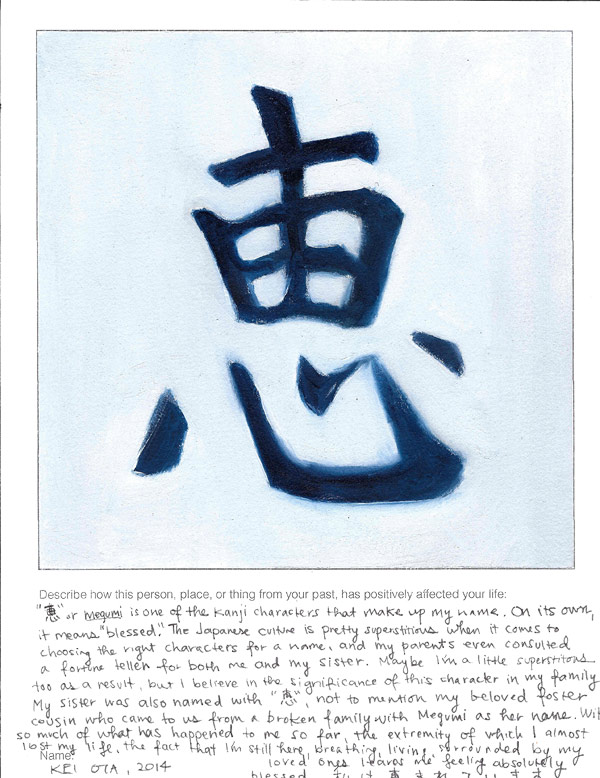 恵
Describe how this person, place, or thing from your past, has positively affected your life:
"恵" or megumi is one of the kanji characters that make up my name. On its own,
it means "blessed." The Japanese culture is pretty superstitious when it comes to
choosing the right characters for a name, and my parents even consulted
a fortune teller for both me and my sister. Maybe I'm a little superstitous
too as a result, but I believe in the significance of this character in my family
My sister was also named with "恵", not to mention my beloved foster
cousin who came to us from a broken family with Megumi as her name. Wit
so much of what has happened to me so far, the extremity of which I almost
lost my life, the fact that I'm still here, breathing, living, surrounded by my
Name: loved ones leaves me feeling absolutely
KEI OTA, 2014 blessed.